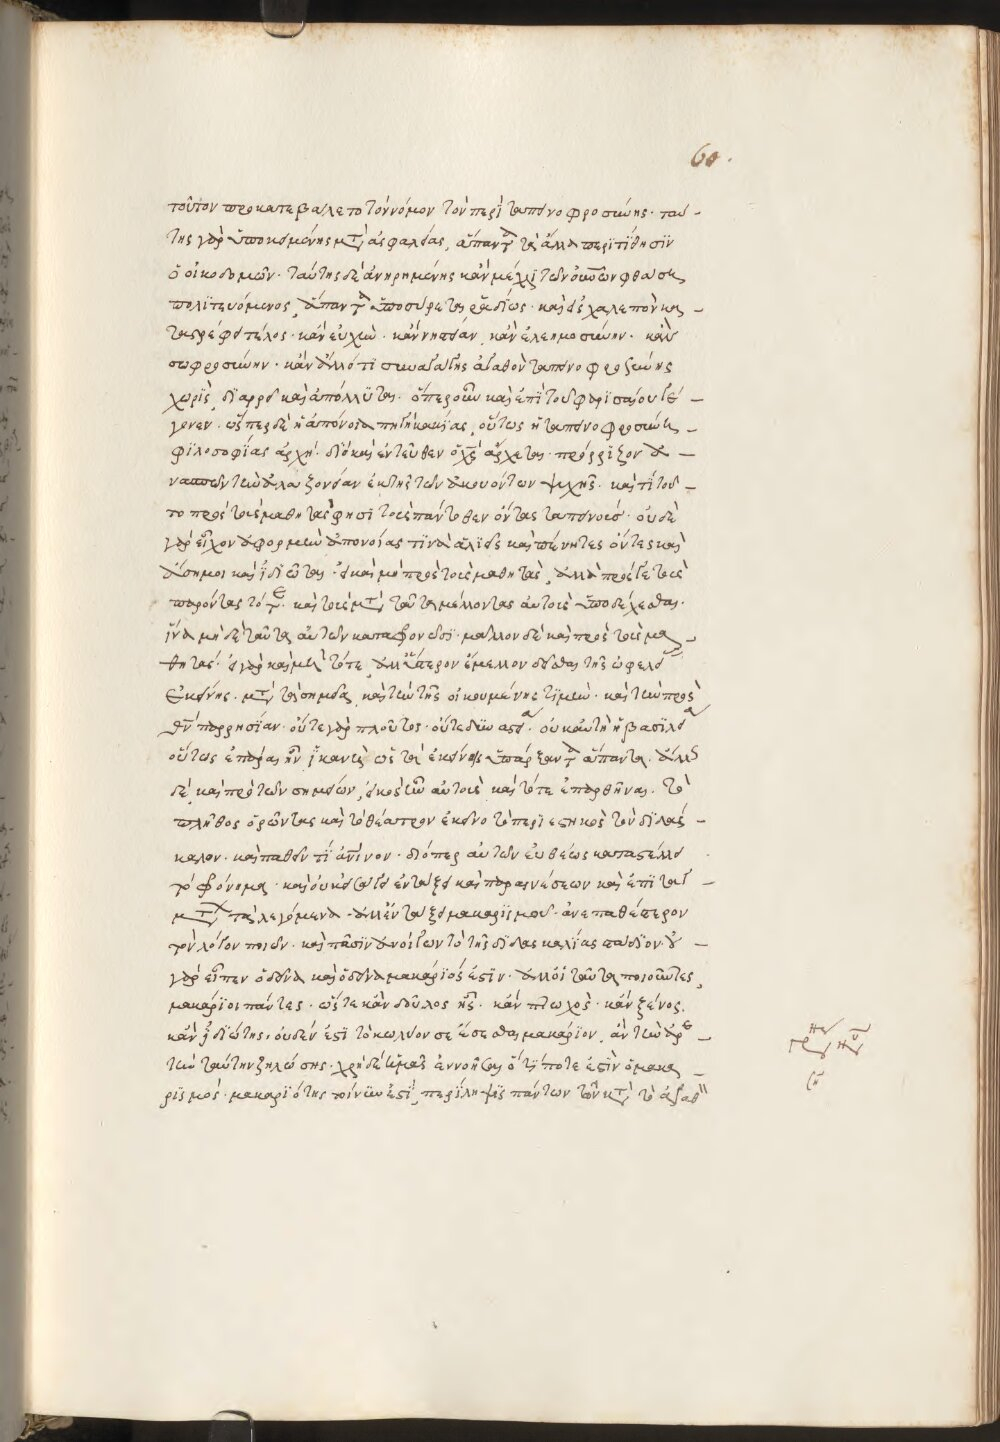 60.
τοῦτον προκατεβάλετο τὸν νόμον τὸν περὶ ταπεινοφροσύνης· ταύ-
της γὰρ ὑποκειμένης μετὰ ἀσφαλείας, ἅπαντα τὰ ἄλλα περιτίθησιν
ὁ οἰκοδομῶν· ταύτης δὲ ἀνῃρημένης κἂν μέχρι τῶν οὐρανῶν φθάσῃ
πολιτευόμενος, ἅπαντα ὑποσύρεται ῥᾳδίως· καὶ εἰς χαλεπὸν κα
ταστρέφει τέλος· κἂν εὐχὴν· κἂν νηστείαν, κἂν ἐλεημοσύνην· κἂν
σωφροσύνην· κἂν ἄλλό τι συναγάγῃς ἀγαθὸν ταπεινοφροσύνης
χωρὶς, διαρρεῖ καὶ ἀπόλλυται· ὅπερ οὖν καὶ ἐπὶ τοῦ φαρισαίου γέ-
γονεν· ὥσπερ δὲ ἡ ἀπόνοια πηγὴ κακίας, οὕτως ἡ ταπεινοφροσύνη-
φιλοσοφίας ἀρχή· διὸ καὶ ἐντεῦθεν ὁ χς ἄρχεται· πρόρριζον ἀ-
νασπῶν τὴν ἀλαζονείαν ἐκ τῆς τῶν ἀκουόντων ψυχῆς· καὶ τί τοῦ-
το πρὸς τοὺς μαθητάς φησι τοὺς πάντοθεν ὄντας ταπεινούς· οὐδὲ
γὰρ εἶχον ἀφορμὴν ἀπονοίας τινὰ ἁλιεῖς καὶ πένητες ὄντες καὶ
ἄσημοι καὶ ἰδιῶται· εἰ καὶ μὴ πρὸς τοὺς μαθητὰς, ἀλλὰ πρός γε τοὺς
παρόντας τότε· καὶ τοὺς μετὰ ταῦτα μέλλοντας αὐτοὺς ὑποδέχεσθαι·
ἵνα μὴ δὲ ταῦτα αὐτῶν καταφρονῶσι· μᾶλλον δὲ καὶ πρὸς τοὺς μα-
θητάς· εἰ γὰρ καὶ μὴ τότε, ἀλλ' ὕστερον ἔμελλον δεῖσθαι τῆς ὠφελείας
ἐκείνης· μετὰ τὰ σημεῖα, καὶ τὴν τῆς οἰκουμένης τιμὴν· καὶ τὴν πρὸς
θν παρρησίαν· οὔτε γὰρ πλοῦτος· οὔτε δυναστεία· οὐκ αὐτὴ ἡ βασιλεία
οὕτως ἐπᾶραι ἦν ἱκανὴ ὡς τὰ ἐκείνοις ὑπάρξαντα ἅπαντα· ἄλλως
δὲ καὶ πρὸ τῶν σημείων, εἰκὸς ἦν αὐτοὺς καὶ τότε ἐπαρθῆναι· τὸ
πλῆθος ὁρῶντας καὶ τὸ θέατρον ἐκεῖνο τὸ περιεστηκὸς τὸν διδάσ-
καλον· καὶ παθεῖν τι ἀνινον· διόπερ αὐτῶν εὐθέως καταστέλλει
τὸ φρόνημα· καὶ οὐκ εἰσάγει ἐν τάξει καὶ παραινέσεων καὶ ἐπιταγ-
μάτων τὰ λεγόμενα· ἀλλ' ἐν τάξει μακαρισμοῦ· ἀνεπαθέστερον
τὸν λόγον ποιῶν· καὶ πᾶσιν ἀνοίγων τὸ τῆς διδασκαλίας στάδιον· οὐ-
γὰρ εἶπεν ὁ δεῖνα καὶ ὁ δεῖνα μακάριός ἐστιν· ἀλλ' οἱ ταῦτα ποιοῦντες
μακάριοι πάντες· ὥστε κἂν δοῦλος ᾖς· κἂν πτωχὸς· κἂν ξένος·
κἂν ἰδιώτης· οὐδέν ἐστι τὸ κωλῦόν σε ἔσεσθαι μακάριον, ἂν τὴν ἀρε-
τὴν ταύτην ζηλώσῃς· χρὴ δὲ ὑμᾶς ἐννοῆσαι ὅ τι ποτε ἐστὶν ὁ μακα-
ρισμός· μακαριότης τοίνυν ἐστὶ, περίληψις πάντων τῶν κατὰ τὸ ἀγαθ